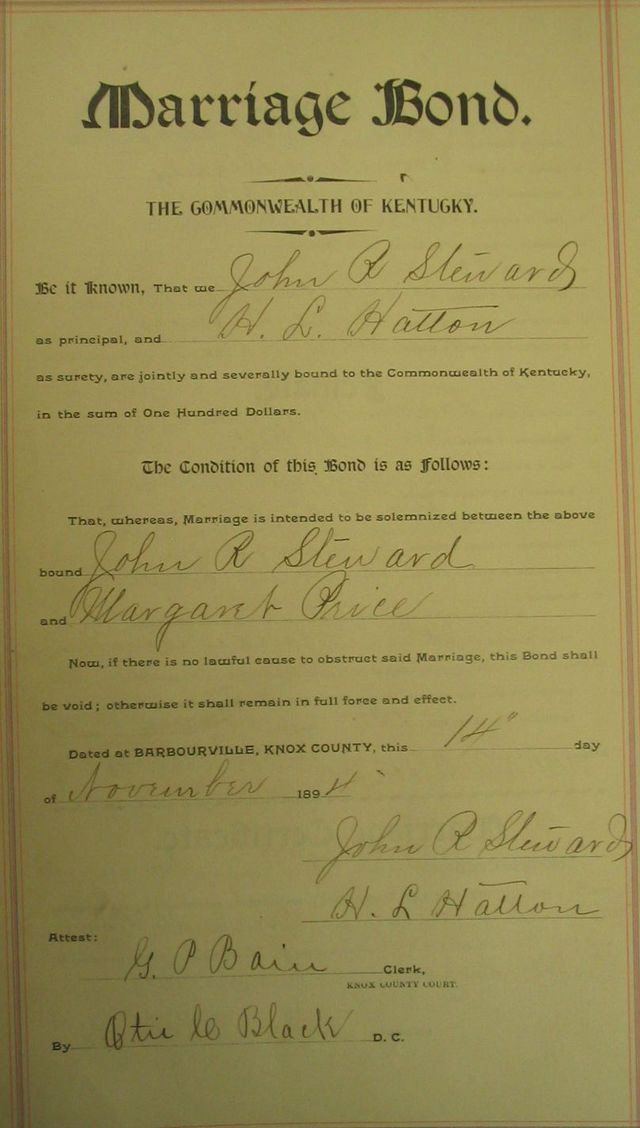 Marriage Bond.
THE COMMONWEALTH OF KENTUCKY.
Be it Known, That we John R Steward
as principal, and H. L. Hatton
as surety, are jointly and severally bound to the Commonwealth of Kentucky,
in the sum of One Hundred Dollars.
The Condition of this Bond is as Follows:
That, whereas, Marriage is intended to be solemnized between the above
bound John R Steward
and Margaret Price
Now, if there is no lawful cause to obstruct said Marriage, this Bond shall
be void; otherwise it shall remain in full force and effect.
Dated at BARBOURVILLE, KNOX COUNTY, this 14" day
of November 1894
John R Steward
H. L Hatton
Attest:
G. P Bain Clerk,
KNOX COUNTY COURT.
By Black D. C.